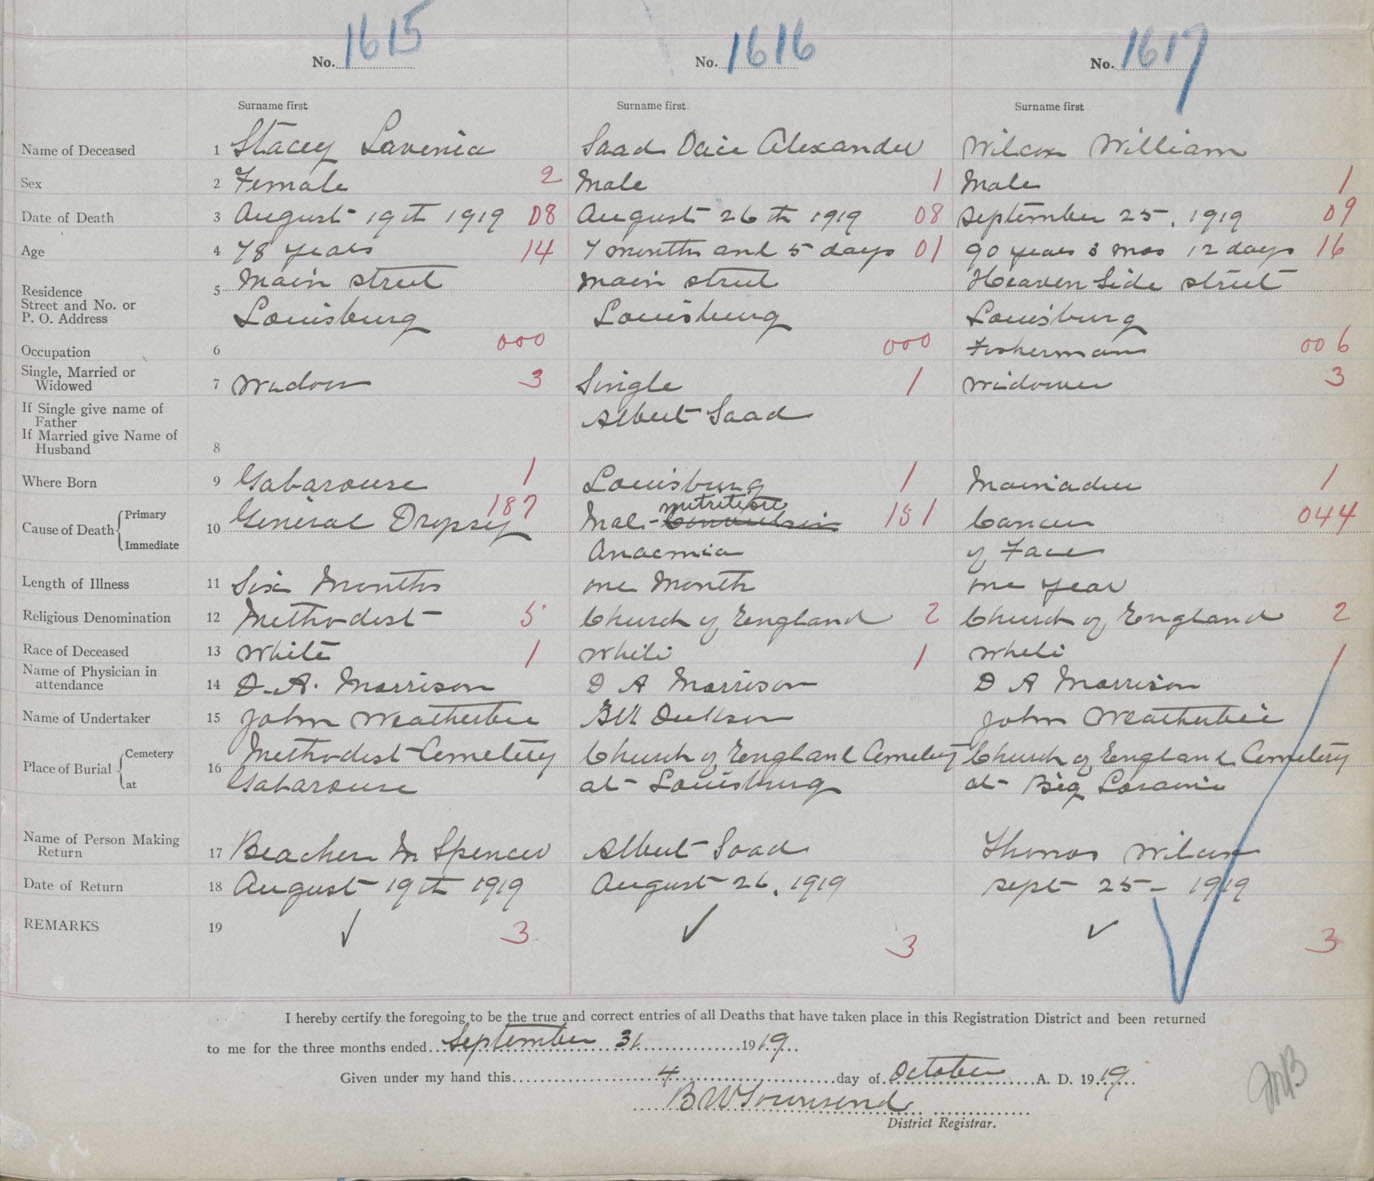 No. 1615 No. 1616 No. 1617
Surname first Surname first Surname first
Name of Deceased 1 Stacey Lavenia Saad Alexander Wilcox William
Sex 2 Female 2 Male 1 Male 1
Date of Death 3 August 19th 1919 08 August 26th 1919 08 September 25, 1919 09
Age 4 78 years 14 7 months and 5 days 01 90 years 3 mos 12 days 16
Main street Main street Heaven Side street
Residence 5
Street and No. or
P. O. Address Louisburg Louisburg Louisburg
Occupation 6 000 000 Fisherman 006
Single, Married or
Widowed 7 Widow 3 Single 1 Widower 3
If Single give name of
Father Albert Saad
If Married give Name of
Husband 8
Where Born 9 Gabarouse 1 Louisburg 1 Mainadieu 1
Cause of Death Primary 10 General Dropsy 187 Mal-nutrition 151 Cancer 044
Immediate Anaemia of Face
Length of Illness 11 Six Months one Month one year
Religious Denomination 12 Methodist 5 Church of England 2 Church of England 2
Race of Deceased 13 White 1 White 1 White 1
Name of Physician in
attendance 14 D. A. Morrison D A Morrison D A Morrison
Name of Undertaker 15 John Weatherbie Dickson John Weatherbie
Place of Burial Cemetery 16 Methodist Cemetery Church of England Cemetery Church of England Cemetery
at Gabarouse at Louisburg at Big Loraine
Name of Person Making
Return 17 Beacher M Spencer Albert Saad Thomas Wilcox
Date of Return 18 August 19th 1919 August 26, 1919 Sept 25- 1919
REMARKS 19 ✓ 3 ✓ 3 ✓ 3
I hereby certify the foregoing to be the true and correct entries of all Deaths that have taken place in this Registration District and been returned
to me for the three months ended September 31 1919.
Given under my hand this 4 day of October A. D. 1919
B W Townsend
District Registrar.